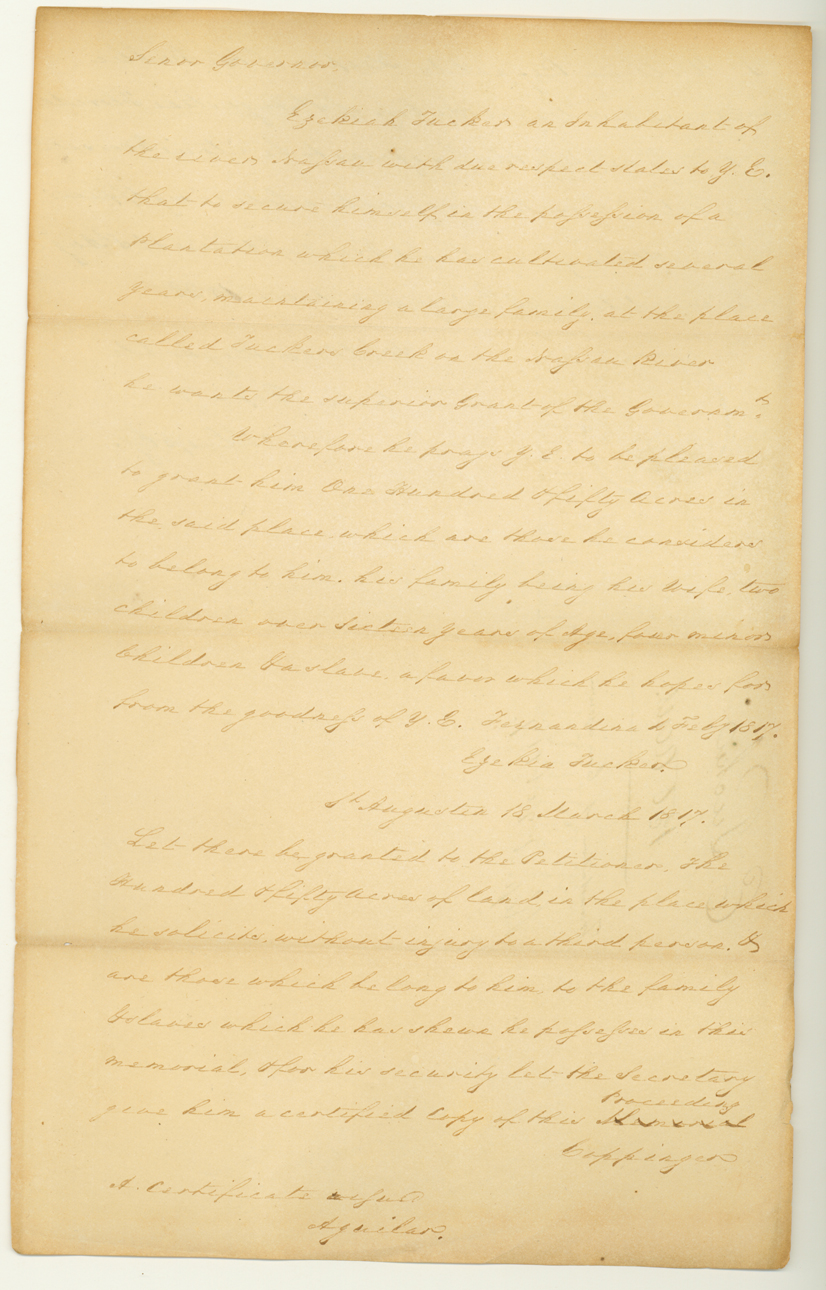 Senor Governor,
Ezekiah Tucker an Inhabitant of
the river Nassau with due respect states to Y. E.
that to secure himself in the possession of a
Plantation which he has cultivated several
years, maintaining a large family, at the place
called Tuckers Creek on the Nassau River
he wants the superior Grant of the Governmt.
Wherefore he prays Y. E. to be pleased
to grant him One Hundred & fifty Acres in
the said place which are those he considers
to belong to him, his family being his Wife, two
children over Sixteen years of Age, four minor
Children & a slave, a favor which he hopes for
from the goodness of Y. E. Fernandina Feby 1817.
Ezekia Tucker.
St. Augustin 18 March 1817.
Let there be granted to the Petitioner, The
Hundred & fifty Acres of land in the place which
he solicits, without injury to a third person, &
are those which belong to him, to the family
& slaves which he has shewn he possesses in this
memorial, & for his security let the Secretary
Proceeding
give him a certified Copy of this Memorial
Coppinger
A Certificate issued
Aguilar.